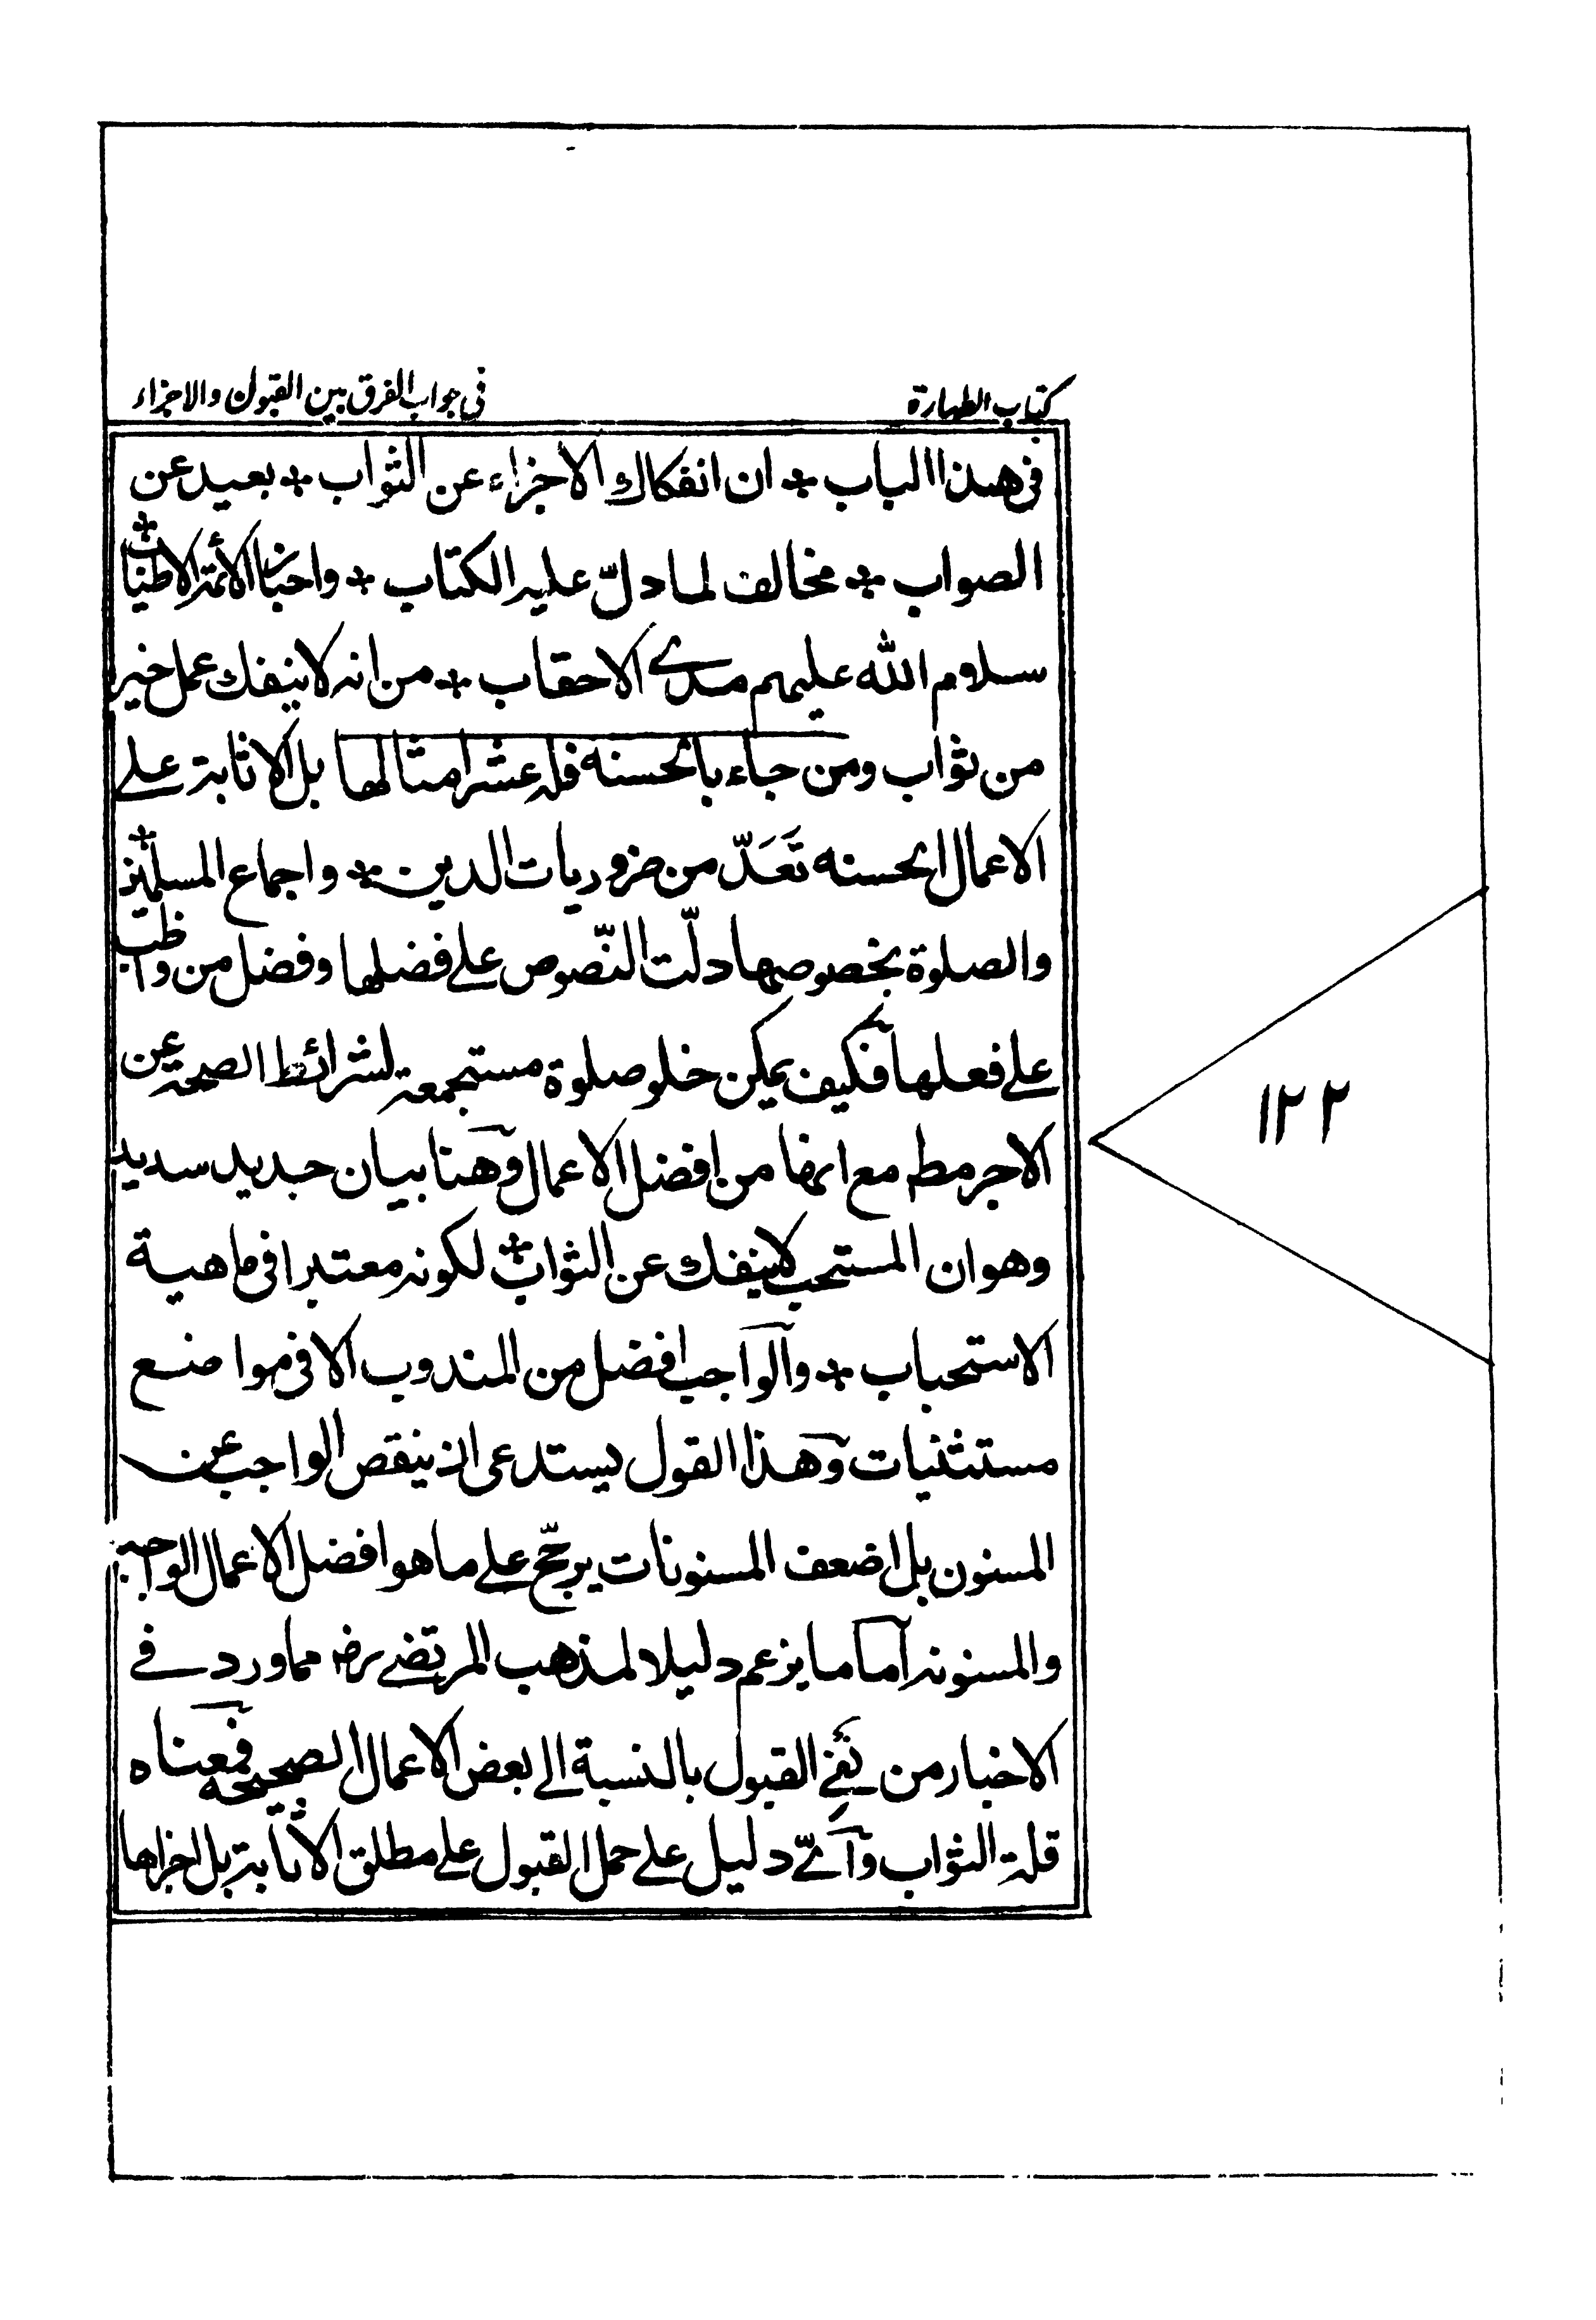 كتاب الطهارة
في جواب الفرق بين القبول والاجزاء
في هذا الباب * ان انفكاك الاجزاء عن الثواب * بعيد عن
الصواب * مخالف لما دلّ عليه الكتاب * واخبار الأئمة الاطياب *
سلام الله عليهم مدى الاحقاب * من انه لا ينفك عمل خير
من ثواب ومن جاء بالحسنه فله عشر امثالها بل الاثابة على
الاعمال الحسنه تَعَدّ من ضروريات الدين * واجماع المسلمين *
والصلوة بخصوصها دلّت النّصوص على فضلها وفضل من واظب
على فعلها فكيف يمكن خلو صلوة مستجمعة لشرائط الصحة عن
الاجر مط مع انها من افضل الاعمال وهنا بيان جديد سديد
وهو ان المستحب لا ينفك عن الثواب * لكونه معتبرا في ماهية
الاستحباب * والواجب افضل من المندوب الا في مواضع
مستثنيات وهذا القول يستدعى ان ينقص الواجب عن
المسنون بل اضعف المسنونات يرجّح على ما هو افضل الاعمال الواجبة
والمسنونه اما ما يزعم دليلا لمذهب المرتضى رضه مما ورد في
الاخبار من نفي القبول بالنسبة الى بعض الاعمال الصحيحه فمعناه
قلة الثواب وايّ دليل على حمل القبول على مطلق الاثابة بل اخراها
١٢٢